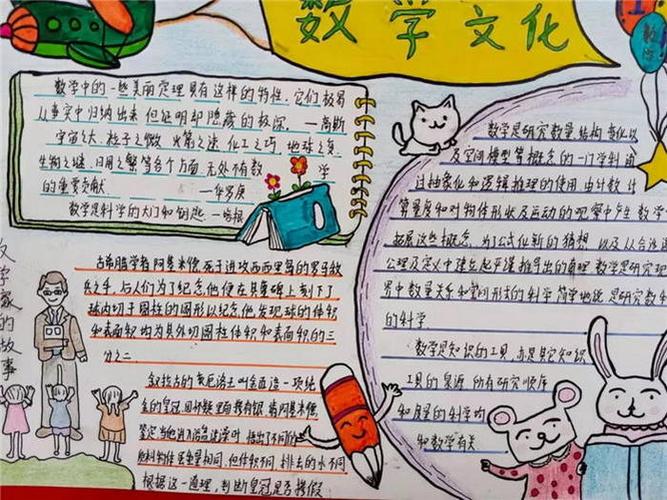 数学文化
数学中的一些美丽定理具有这样的特性,它们极易
从事实中归纳出来,但证明却隐藏的极深。—高斯
宇宙之大、粒子之微、火箭之速、化工之巧、地球之变、
生物之谜、日用之繁等各个方面,无处不有数学
的重要贡献 —华罗庚
数学是科学的大门和钥匙—培根
数学家的故事
古希腊学者阿基米德死于进攻西西里岛的罗马敌
兵之手,人们为了纪念他便在其墓碑上刻下了
球内切于圆柱的图形以纪念他发现球的体积
和表面积均为其外切圆柱体积和表面积的三
分之二
叙拉古的亥厄洛王叫金匠造一顶纯
金的皇冠,因怀疑里面掺有银,请阿基米德
鉴定,当他进入浴盆
材料物体虽重量相同,但体积不同,排去的水不同
根据这一道理,判断皇冠是否掺假
数学是研究数量、结构、变化以
及空间模型等概念的一门学科,通
过抽象化和逻辑推理的使用,由计数、计
算、量度和对物体形状及运动的观察中产生,数学
拓展这些概念,为了公式化新的猜想以及从合适
公理及定义中建立起严谨推导出的真理,数学是研究现
界中数量关系和空间形式的科学,简单地说,是研究数
的科学
数学是知识的工具,亦是其它知识
工具的泉源,所有研究顺序
和度量的科学均
和数学有关